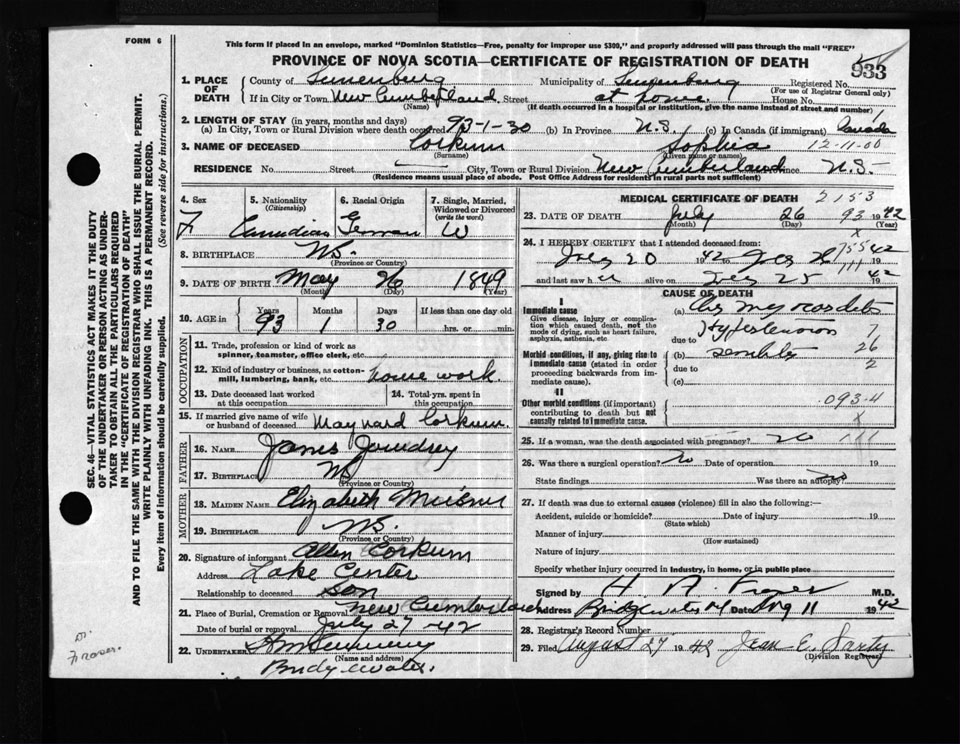 FORM 6
This form if placed in an envelope, marked "Dominion Statistics—Free, penalty for improper use $300," and properly addressed will pass through the mail "FREE"
PROVINCE OF NOVA SCOTIA—CERTIFICATE OF REGISTRATION OF DEATH
933
1. PLACE OF DEATH County of Lunenburg Municipality of Lunenburg Registered No.
(For use of Registrar General only)
If in City or Town New Cumberland Street at home. House No.
(Name) (If death occurred in a hospital or institution, give the name instead of street and number)
2. LENGTH OF STAY (in years, months and days)
(a) In City, Town or Rural Division where death occurred 93-1-30 (b) In Province N.S. (c) In Canada (if immigrant) Canada
3. NAME OF DECEASED Corkum Sophia 12-11-00
(Surname) (Given name or names)
RESIDENCE No. Street City, Town or Rural Division New Cumberland Province N.S.
(Residence means usual place of abode. Post Office Address for residents in rural parts not sufficient)
4. Sex F
5. Nationality (Citizenship) Canadian
6. Racial Origin German
7. Single, Married, Widowed or Divorced (write the word) W
8. BIRTHPLACE N.S.
(Province or Country)
9. DATE OF BIRTH May 26 1849
(Month) (Day) (Year)
10. AGE in Years 93 Months 1 Days 30 If less than one day old
hrs. or min.
OCCUPATION
11. Trade, profession or kind of work as
spinner, teamster, office clerk, etc.
12. Kind of industry or business, as cotton-
mill, lumbering, bank, etc. house work.
13. Date deceased last worked at this occupation
14. Total yrs. spent in this occupation
15. If married give name of wife or husband of deceased Maynard Corkum.
FATHER
16. NAME James Joudrey
17. BIRTHPLACE NS
(Province or Country)
MOTHER
18. MAIDEN NAME Elizabeth Meisner
19. BIRTHPLACE N.S.
(Province or Country)
20. Signature of informant Allen Corkum
Address Lake Center
Relationship to deceased son
21. Place of Burial, Cremation or Removal New Cumberland
Date of burial or removal July 27 42
22. UNDERTAKER
(Name and address)
Bridgewater.
MEDICAL CERTIFICATE OF DEATH 2153
23. DATE OF DEATH July 26 93 1942
(Month) (Day) (Year)
24. I HEREBY CERTIFY that I attended deceased from:
July 20 1942 to July 42
and last saw h alive on July 25 42
CAUSE OF DEATH
I
Immediate cause
Give disease, injury or complication which caused death, not the mode of dying, such as heart failure, asphyxia, asthenia, etc.
(a) Chr myocarditis
due to Hypertension 7
Morbid conditions, if any, giving rise to immediate cause (stated in order proceeding backwards from immediate cause).
(b) senility 26
due to 2
(c)
II
Other morbid conditions (if important) contributing to death but not causally related to immediate cause.
093-4
25. If a woman, was the death associated with pregnancy? no
26. Was there a surgical operation? no Date of operation 19
State findings Was there an autopsy? no
27. If death was due to external causes (violence) fill in also the following:—
Accident, suicide or homicide? Date of injury 19
(State which)
Manner of injury
(How sustained)
Nature of injury
Specify whether injury occurred in industry, in home, or in public place
Signed by H A Fraser M.D.
Address Bridgewater Date Aug 11 1942
28. Registrar's Record Number
29. Filed August 27 1942 Jean E. Sarty
(Division Registrar)
SEC. 46—VITAL STATISTICS ACT MAKES IT THE DUTY
OF THE UNDERTAKER OR PERSON ACTING AS UNDER-
TAKER TO OBTAIN ALL THE PARTICULARS REQUIRED
IN THE "CERTIFICATE OF REGISTRATION OF DEATH"
AND TO FILE THE SAME WITH THE DIVISION REGISTRAR WHO SHALL ISSUE THE BURIAL PERMIT.
WRITE PLAINLY WITH UNFADING INK. THIS IS A PERMANENT RECORD.
Every item of information should be carefully supplied. (See reverse side for instructions.)
Dr.
Fraser.